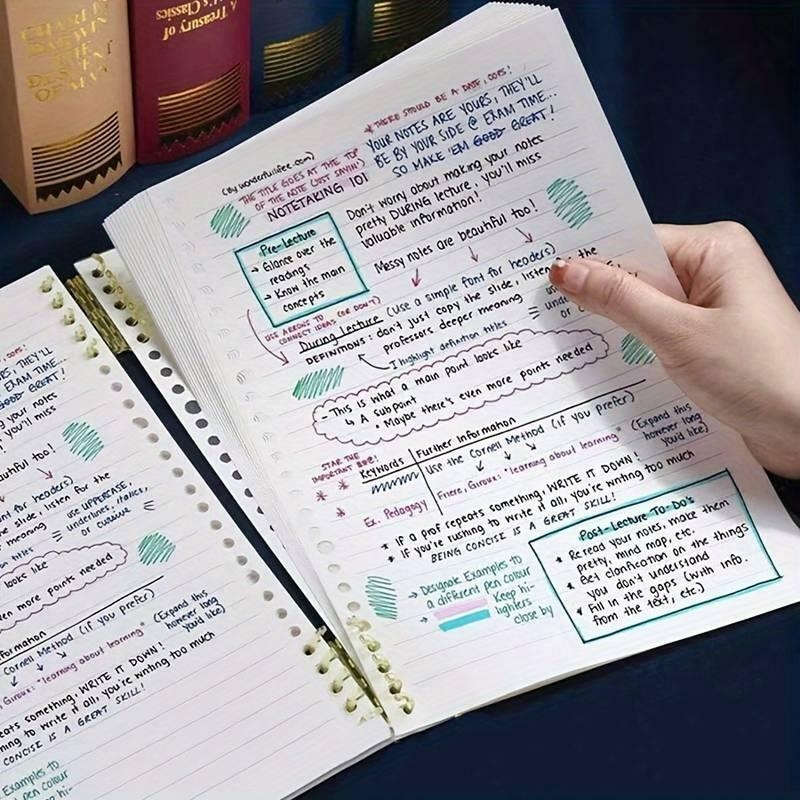 CHARLES
DARWIN
THE
DESCENT
OF MAN
A Treasury of
's Classics
(By wonderfulifee.com)
THE TITLE GOES AT THE TOP
OF THE NOTE (JUST SAYIN')
NOTETAKING 101
* THERE SHOULD BE A DATE, OOPS!
YOUR NOTES ARE YOURS, THEY'LL
BE BY YOUR SIDE @ EXAM TIME...
SO MAKE 'EM GOOD GREAT!
Pre-Lecture
→ Glance over the
readings
→ Know the main
concepts
Don't worry about making your notes
pretty DURING lecture, you'll miss
valuable information!
Messy notes are beautiful too!
USE ARROWS TO
CONNECT IDEAS (OR DON'T)
During Lecture (use a simple font for headers)
DEFINITIONS: don't just copy the slide, listen the
professors deeper meaning
I highlight definition titles
use
unde
or c
- This is what a main point looks like
↳ A subpoint
• Maybe there's even more points needed
STAR THE
IMPORTANT
* *
*
Keywords
Ex. Pedagogy
Further Information
Use the Cornell Method (if you prefer)
Friere, Giroux: "learning about learning"
(Expand this
however long
you'd like)
* If a prof repeats something, WRITE IT DOWN!
* If you're rushing to write it all, you're writing too much
BEING CONCISE IS A GREAT SKILL!
→ Designate Examples to
a different pen colour
→ Keep hi-
lighters
close by
Post-Lecture To-Do's
* Reread your notes, make them
pretty, mind map, etc.
* Get clarification on the things
you don't understand
* Fill in the gaps (with info.
from the text, etc.)
OOPS!
RS, THEY'LL
EXAM TIME...
GOOD GREAT!
ng your notes
you'll miss
autiful too!
nt for headers)
listen for the
meaning
use UPPERCASE,
underlines, italics,
or cursive
n titles
looks like
ven more points needed
formation
Cornell Method (if you prefer)
Giroux: "learning about learning"
(Expand this
however long
you'd like)
eats something, WRITE IT DOWN!
hing to write it all, you're writing too much
CONCISE IS A GREAT SKILL!
Examples to
pen colour
hi-